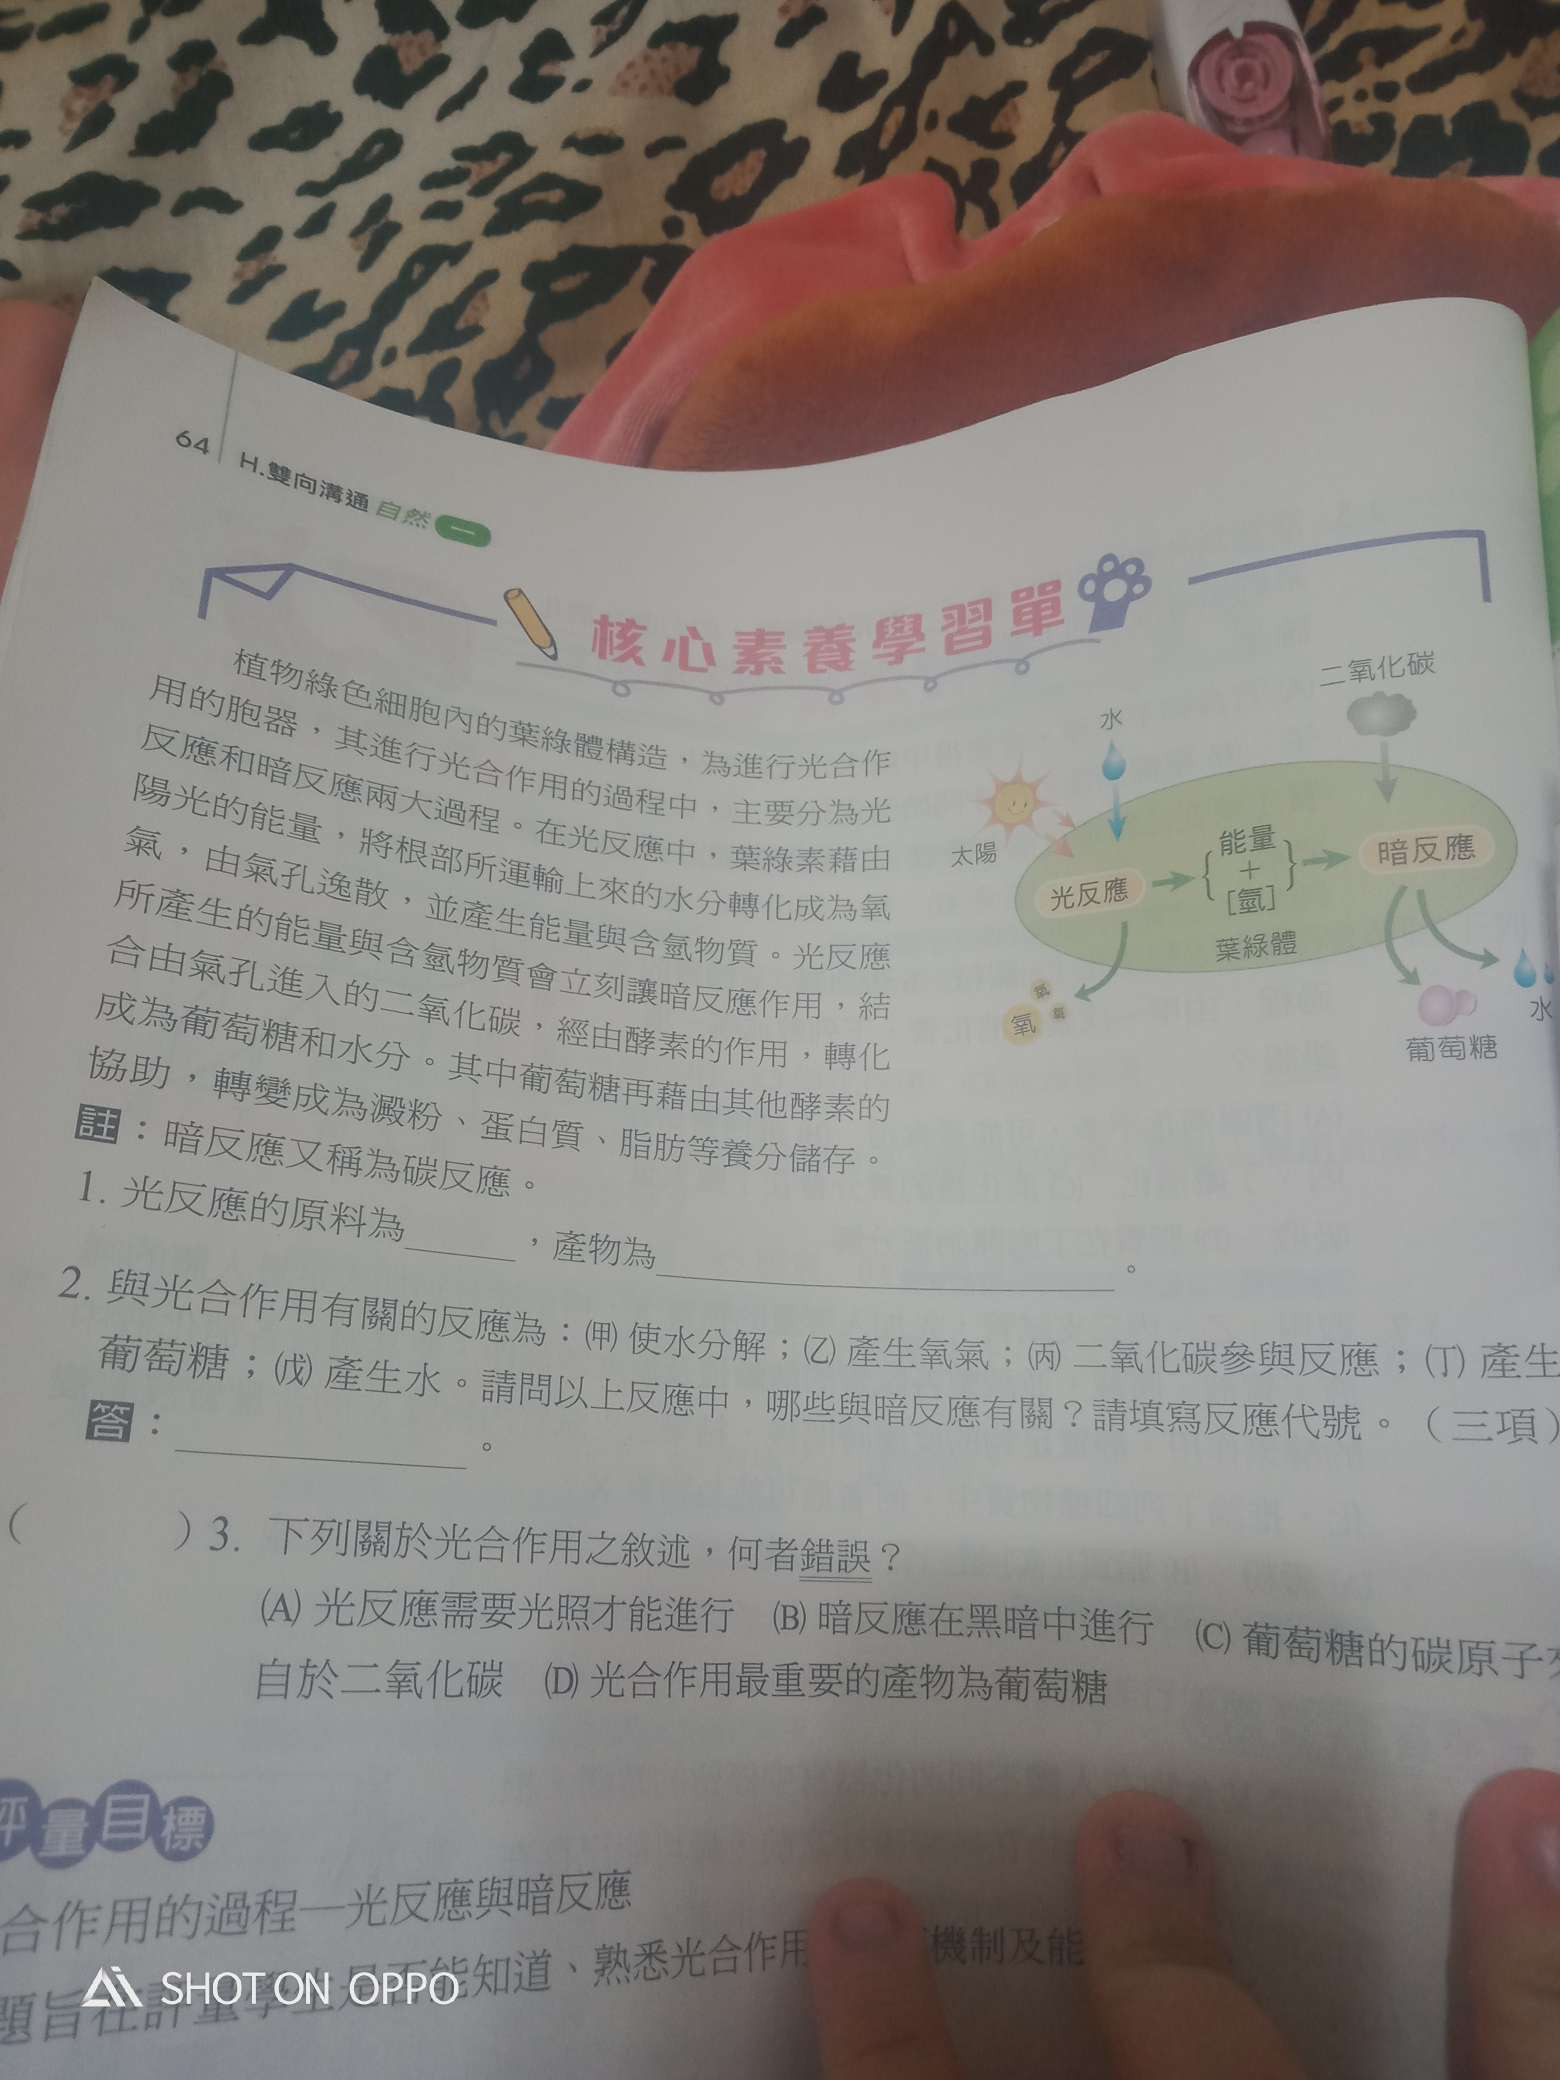 64
H.雙向溝通 自然 一
核心素養學習單
植物綠色細胞內的葉綠體構造，為進行光合作
用的胞器，其進行光合作用的過程中，主要分為光
反應和暗反應兩大過程。在光反應中，葉綠素藉由
陽光的能量，將根部所運輸上來的水分轉化成為氧
氣，由氣孔逸散，並產生能量與含氫物質。光反應
所產生的能量與含氫物質會立刻讓暗反應作用，結
合由氣孔進入的二氧化碳，經由酵素的作用，轉化
成為葡萄糖和水分。其中葡萄糖再藉由其他酵素的
協助，轉變成為澱粉、蛋白質、脂肪等養分儲存。
註：暗反應又稱為碳反應。
二氧化碳
水
太陽
光反應
能量
+
[氫]
暗反應
葉綠體
氧
氧
氧
葡萄糖
水
1. 光反應的原料為______，產物為______________________。
2. 與光合作用有關的反應為：㈙ 使水分解；㈚ 產生氧氣；㈛ 二氧化碳參與反應；㈜ 產生
葡萄糖；㈝ 產生水。請問以上反應中，哪些與暗反應有關？請填寫反應代號。（三項）
答：______________。
（　　）3. 下列關於光合作用之敘述，何者錯誤？
(A) 光反應需要光照才能進行 (B) 暗反應在黑暗中進行 (C) 葡萄糖的碳原子
自於二氧化碳 (D) 光合作用最重要的產物為葡萄糖
評量目標
合作用的過程—光反應與暗反應
題旨在評量學生是否能知道、熟悉光合作用 機制及能
SHOT ON OPPO